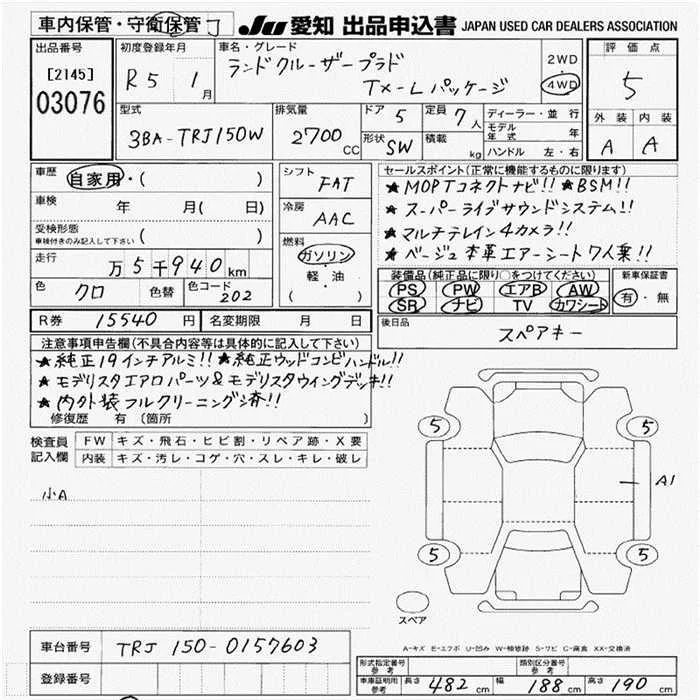 車内保管・守衛保管
JU 愛知 出品申込書 JAPAN USED CAR DEALERS ASSOCIATION
出品番号
[2145]
03076
初度登録年月
R5 1月
車名・グレード
ランドクルーザープラド
TX-Lパッケージ
2WD
・
4WD
評価点
5
外装 内装
A A
型式
3BA-TRJ150W
排気量
2700 CC
ドア 5
形状 SW
定員 7人
積載 kg
ディーラー・並行
モデル年式 年
ハンドル 左・右
車歴 自家用・( )
車検 年 月( 日)
受検形態
車検付きのみ記入して下さい ( )
走行 万5千940km
色 クロ 色替 色コード 202
シフト FAT
冷房 AAC
燃料
ガソリン
軽・油
( )
セールスポイント(正常に機能するものに限ります)
★MOPTコネクトナビ!! ★BSM!!
★スーパーライブサウンドシステム!!
★マルチテレイン4カメラ!!
★ベージュ本革エアーシート7人乗!!
装備品(純正品に限り○をつけてください)
PS PW エアB AW
SR ナビ TV カワシート
新車保証書
有・無
R券 15540円 名変期限 月 日
後日品
スペアキー
注意事項申告欄(不具合内容等は具体的に記入して下さい)
★純正19インチアルミ!! ★純正ウッドコンビハンドル!!
★モデリスタエアロパーツ&モデリスタウイングデッキ!!
★内外装フルクリーニング済!!
修復歴 有 (箇所 )
検査員記入欄
FW キズ・飛石・ヒビ割・リペア跡・X要
内装 キズ・汚レ・コゲ・穴・スレ・キレ・破レ
小A
5 5
A1
5 5
スペア
A-キズ E-エクボ U-凹み W-補修跡 S-サビ C-腐食 XX-交換済
車台番号 TRJ 150-0157603
登録番号
形式指定番号 参考
類別区分番号 参考
車庫証明用 参考 長さ 482cm 幅 188cm 高さ 190cm